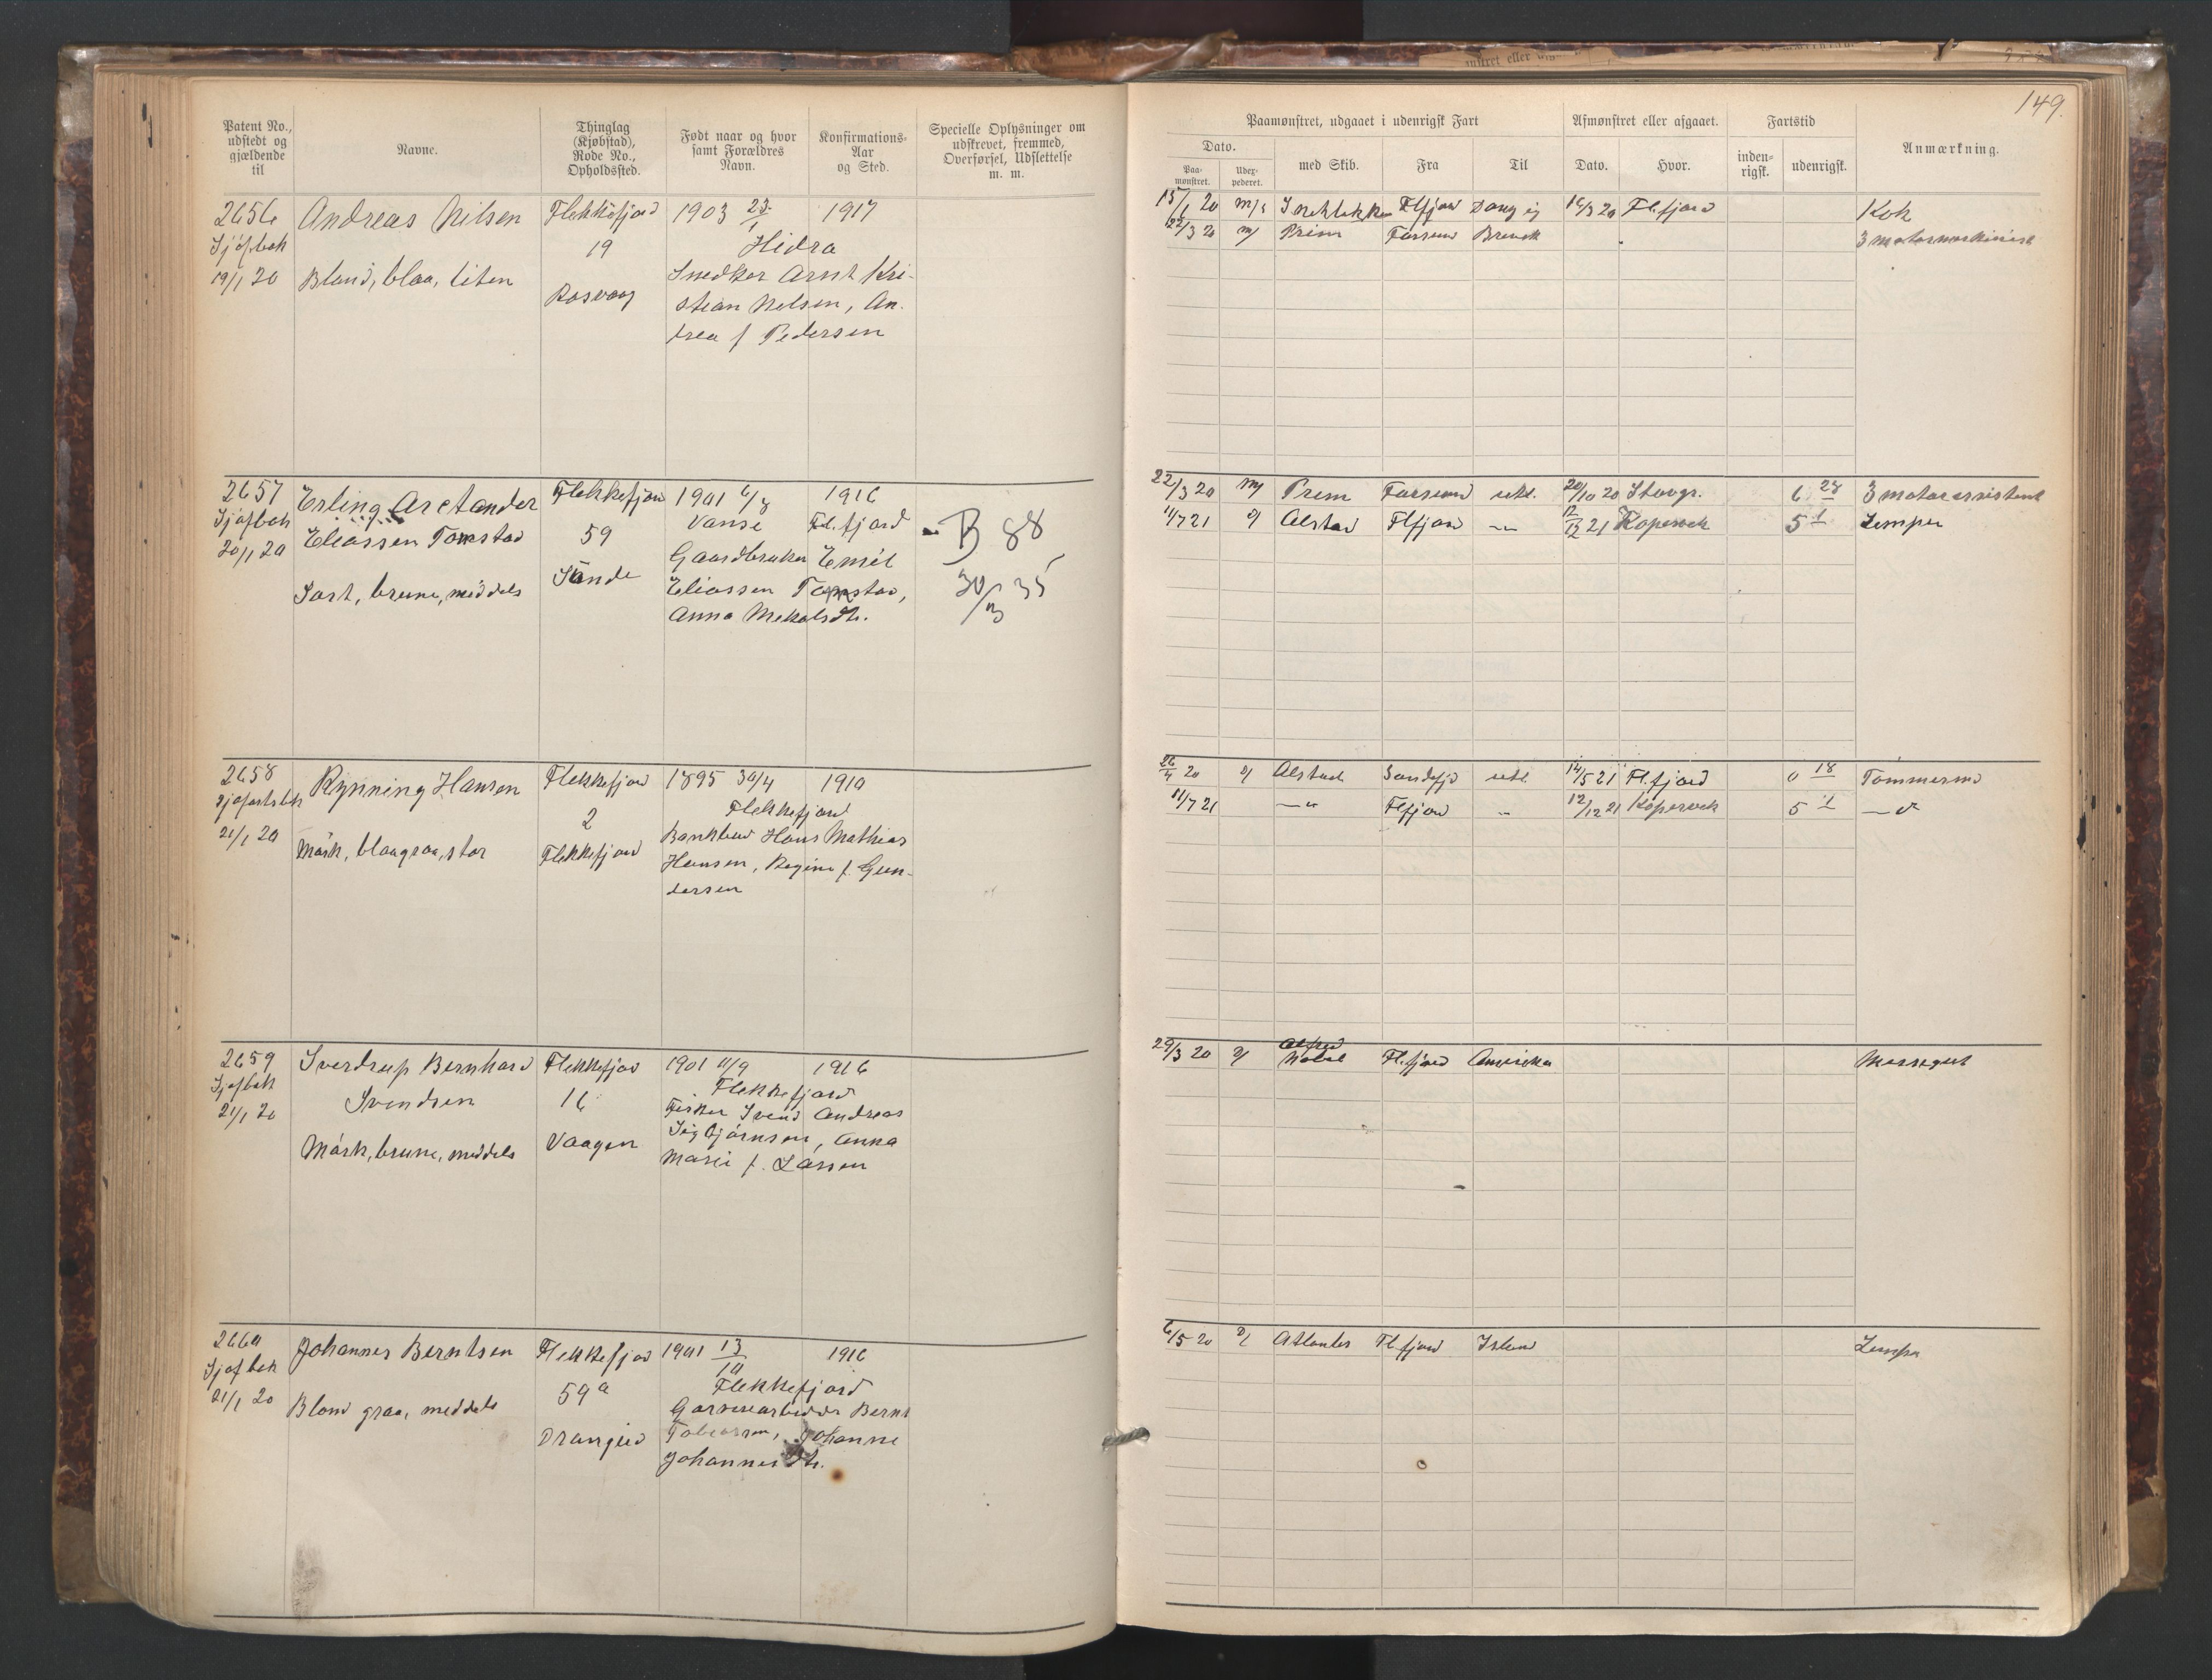 149.
Patent No., udstedt og gjældende til
Navne.
Thinglag (Kjøbstad), Rode No., Opholdssted.
Født naar og hvor samt Forældres Navn.
Konfirmations-Aar og Sted.
Specielle Oplysninger om udskrevet, fremmed, Overførsel, Udslettelse m. m.
Paamønstret, udgaaet i udenrigsk Fart
Dato.
Paa-mønstret.
Udex-pederet.
med Skib.
Fra
Til
Afmønstret eller afgaaet.
Dato.
Hvor.
Fartstid
inden-rigsk.
udenrigsk.
Anmærkning.
2656 Andreas Nilsen Flekkefjord 1903 23/1 1917
Sjøfbok 19 Hidra
19/1 20 Blond, blaa, liten Rasvaag Snedker Arnt Kri-
stian Nilsen, An-
drea f Pedersen
15/1 20 m/s Flfjord 16/3 20 Flfjord Kok
22/3 20 m/ Prim Farsund 3 motormaskinist
2657 Erling Arctander Flekkefjord 1901 6/8 1916
Sjøfbok Eliassen Tomstad 59 Vanse Fl.fjord
20/1 20 Sort, brune, middels Sande Gaardbruker Emil
Eliassen Tomstad,
Anna Mekalsdtr.
B 88
30/3 35
22/3 20 m/ Prim Farsund utl. 20/10 20 Stavgr. 6 28 3 motorassistent
11/7 21 d/ Alstad Flfjord —"— 12/12 21 Kopervik 5 1 Lemper
2658 Rynning Hansen Flekkefjord 1895 30/4 1910
Sjøfartsbk 2 Flekkefjord
21/1 20 Mørk, blaagraa, stor Flekkefjord Bankbud Hans Mathias
Hansen, Regine f. Gun-
dersen
26/4 20 d/ Alstad Sandefjd utl. 14/5 21 Fl.fjord 0 18 Tømmermd
11/7 21 —"— Flfjord —"— 12/12 21 Kopervik 5 1 —"—
2659 Sverdrup Bernhard Flekkefjord 1901 11/9 1916
Sjøfbok Svendsen 16 Flekkefjord
21/1 20 Mørk, brune, middels Vaagen Fisker Svend Andreas
Sigbjørnsen, Anna
Marie f. Larsen
29/3 20 d/ Alfred Nobel Fl.fjord Amerika Messegut
2660 Johannes Berntsen Flekkefjord 1901 13/10 1916
Sjøfbok 59a Flekkefjord
21/1 20 Blond graa, middels Drangeid Garveriarbeider Bernt
Tobiassen, Johanne
Johannesdtr.
6/5 20 d/ Atlantes Fl.fjord Island Lemper